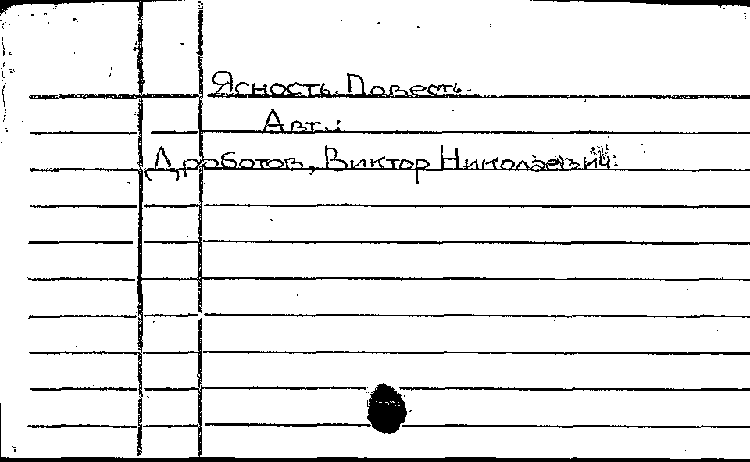 Ясность. Повесть.
Авт.:
Дроботов, Виктор Николаевич.